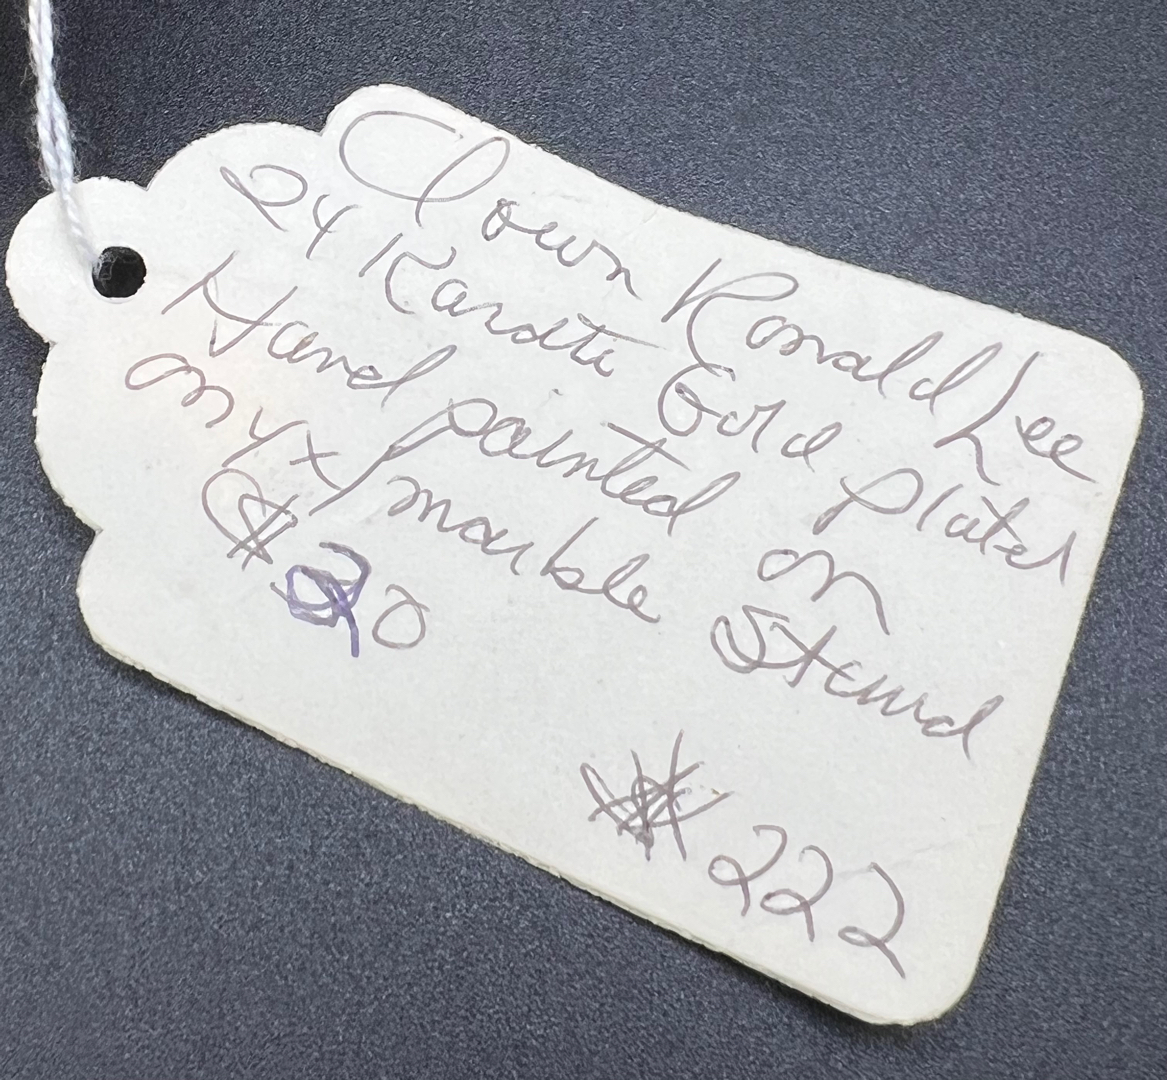 Clown Ronald Lee
24 Karate Gold plated
Hand painted on
onyx/marble Stand
$ 20
# 222